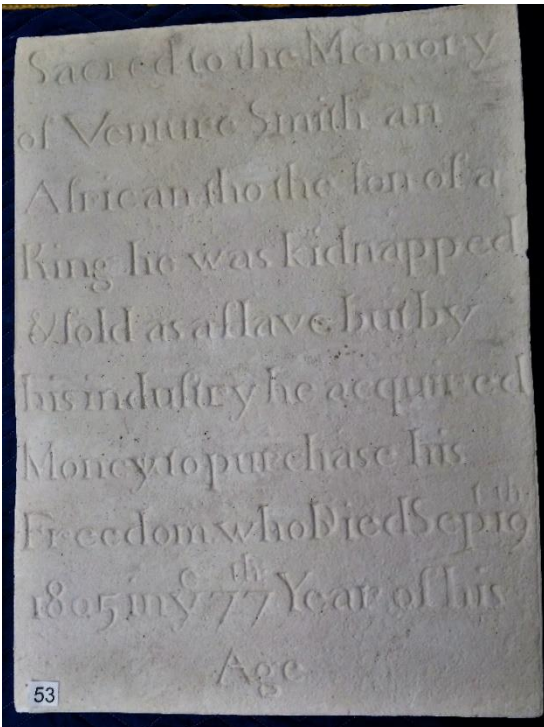 Sacred to the Memory
of Venture Smith an
African tho the ſon of a
King he was kidnapped
& ſold as a ſlave but by
his induſtry he acquired
Money to purchase his
Freedom who Died Sepᵗ 19ᵗʰ
1805 in yᵉ 77ᵗʰ Year of his
Age
53